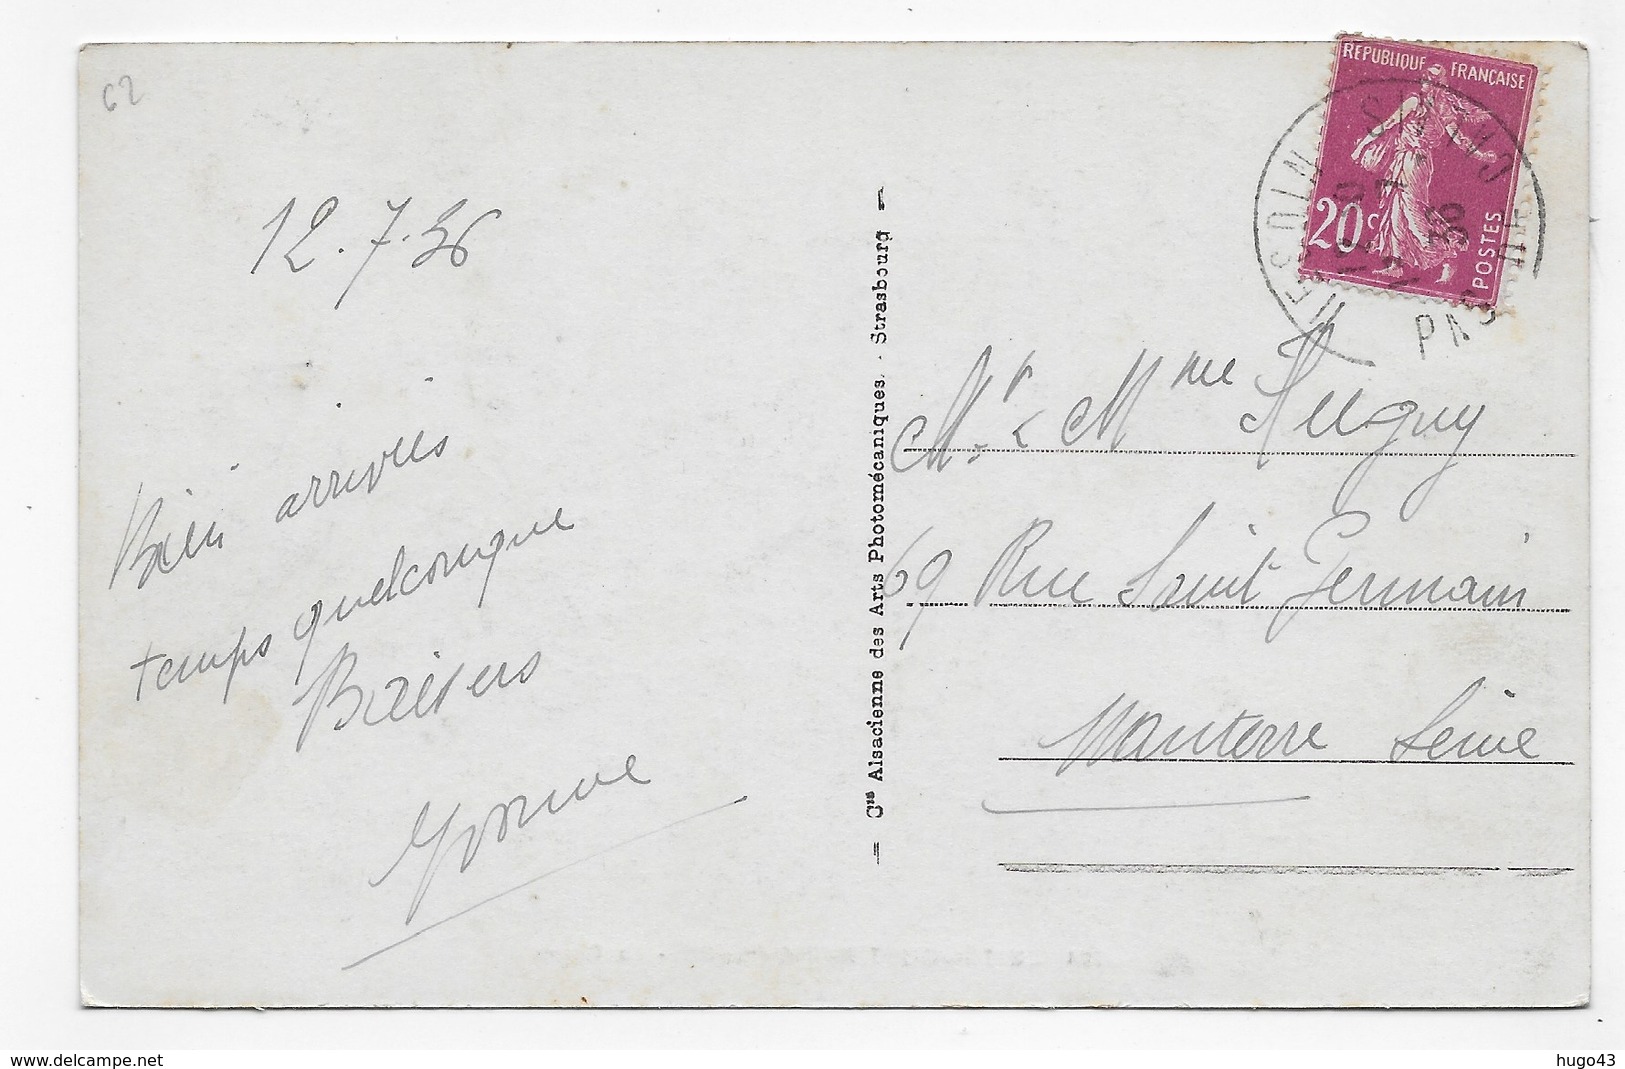 62
12.7.36
Bien arrivées
temps quelconque
Baisers
Yvonne
— Cie Alsacienne des Arts Photomécaniques. - Strasbourg —
REPUBLIQUE FRANÇAISE
20c
POSTES
CALAIS
PAS DE
12-7
36
Mr & Mme Huguy
69 Rue Saint Germain
Nanterre Seine
www.delcampe.net
hugo43